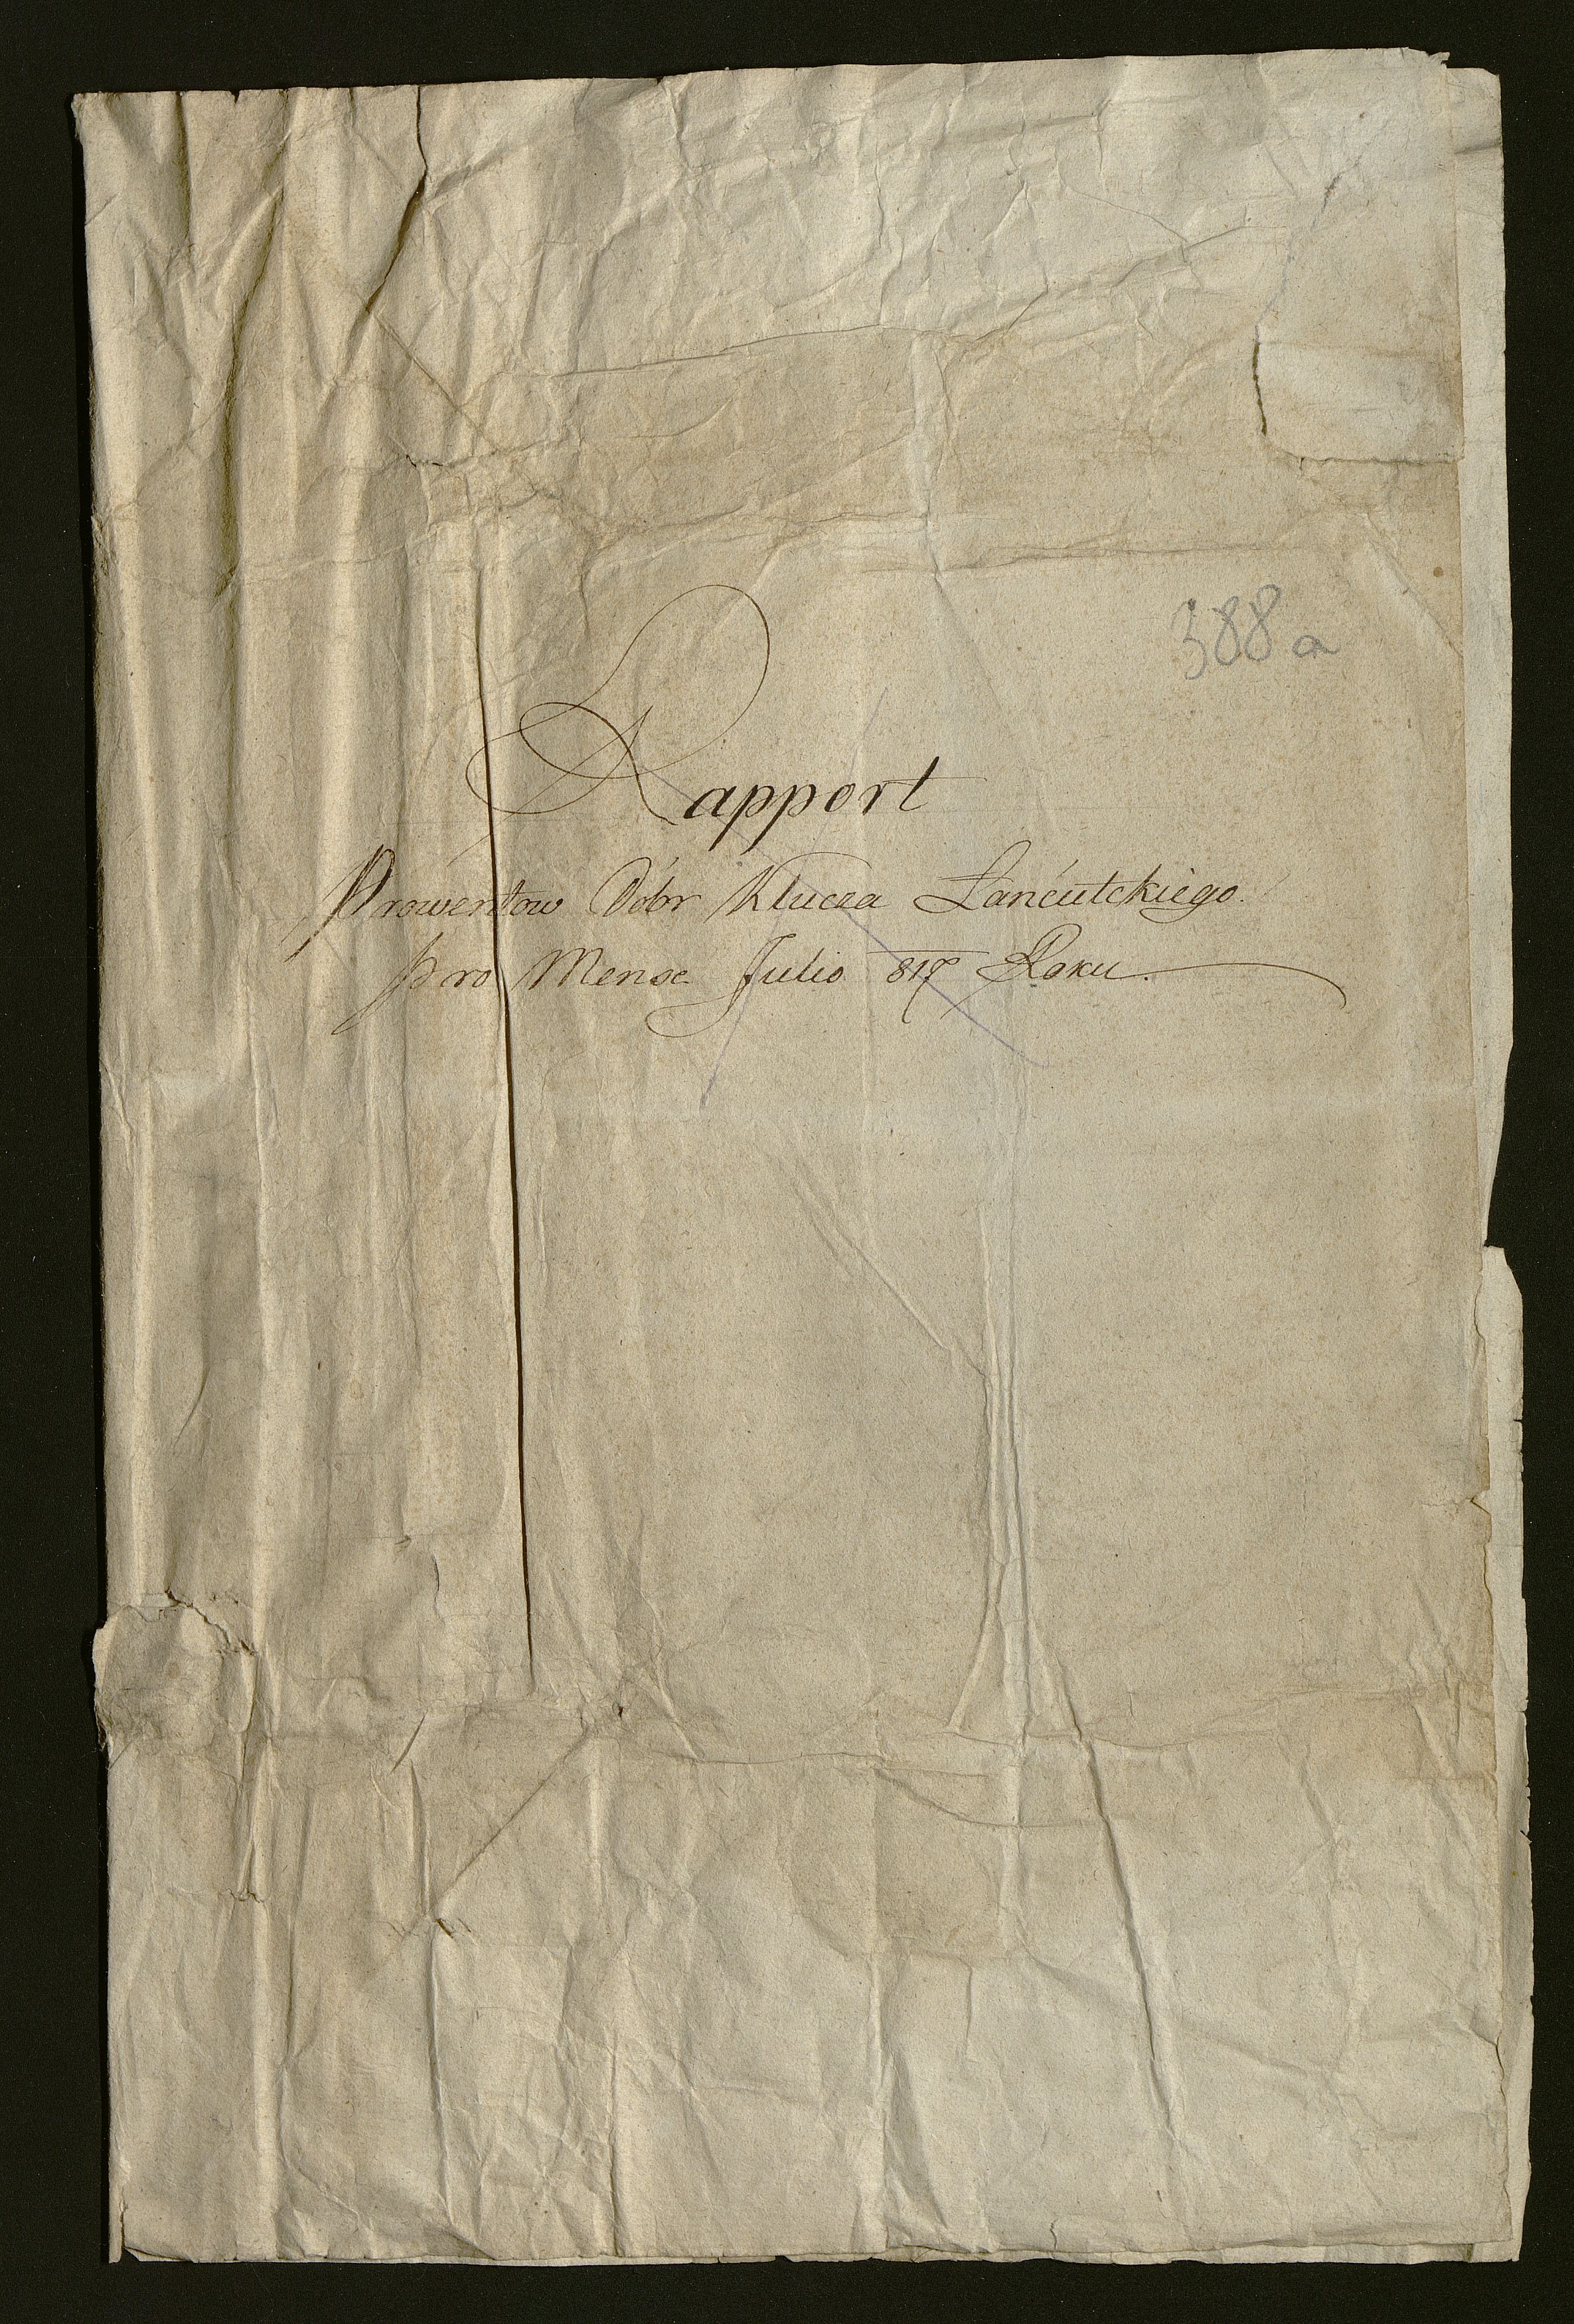 388a
Rapport
Prowentow Dóbr Klucza Łańcutckiego.
pro Mense Julio Roku.